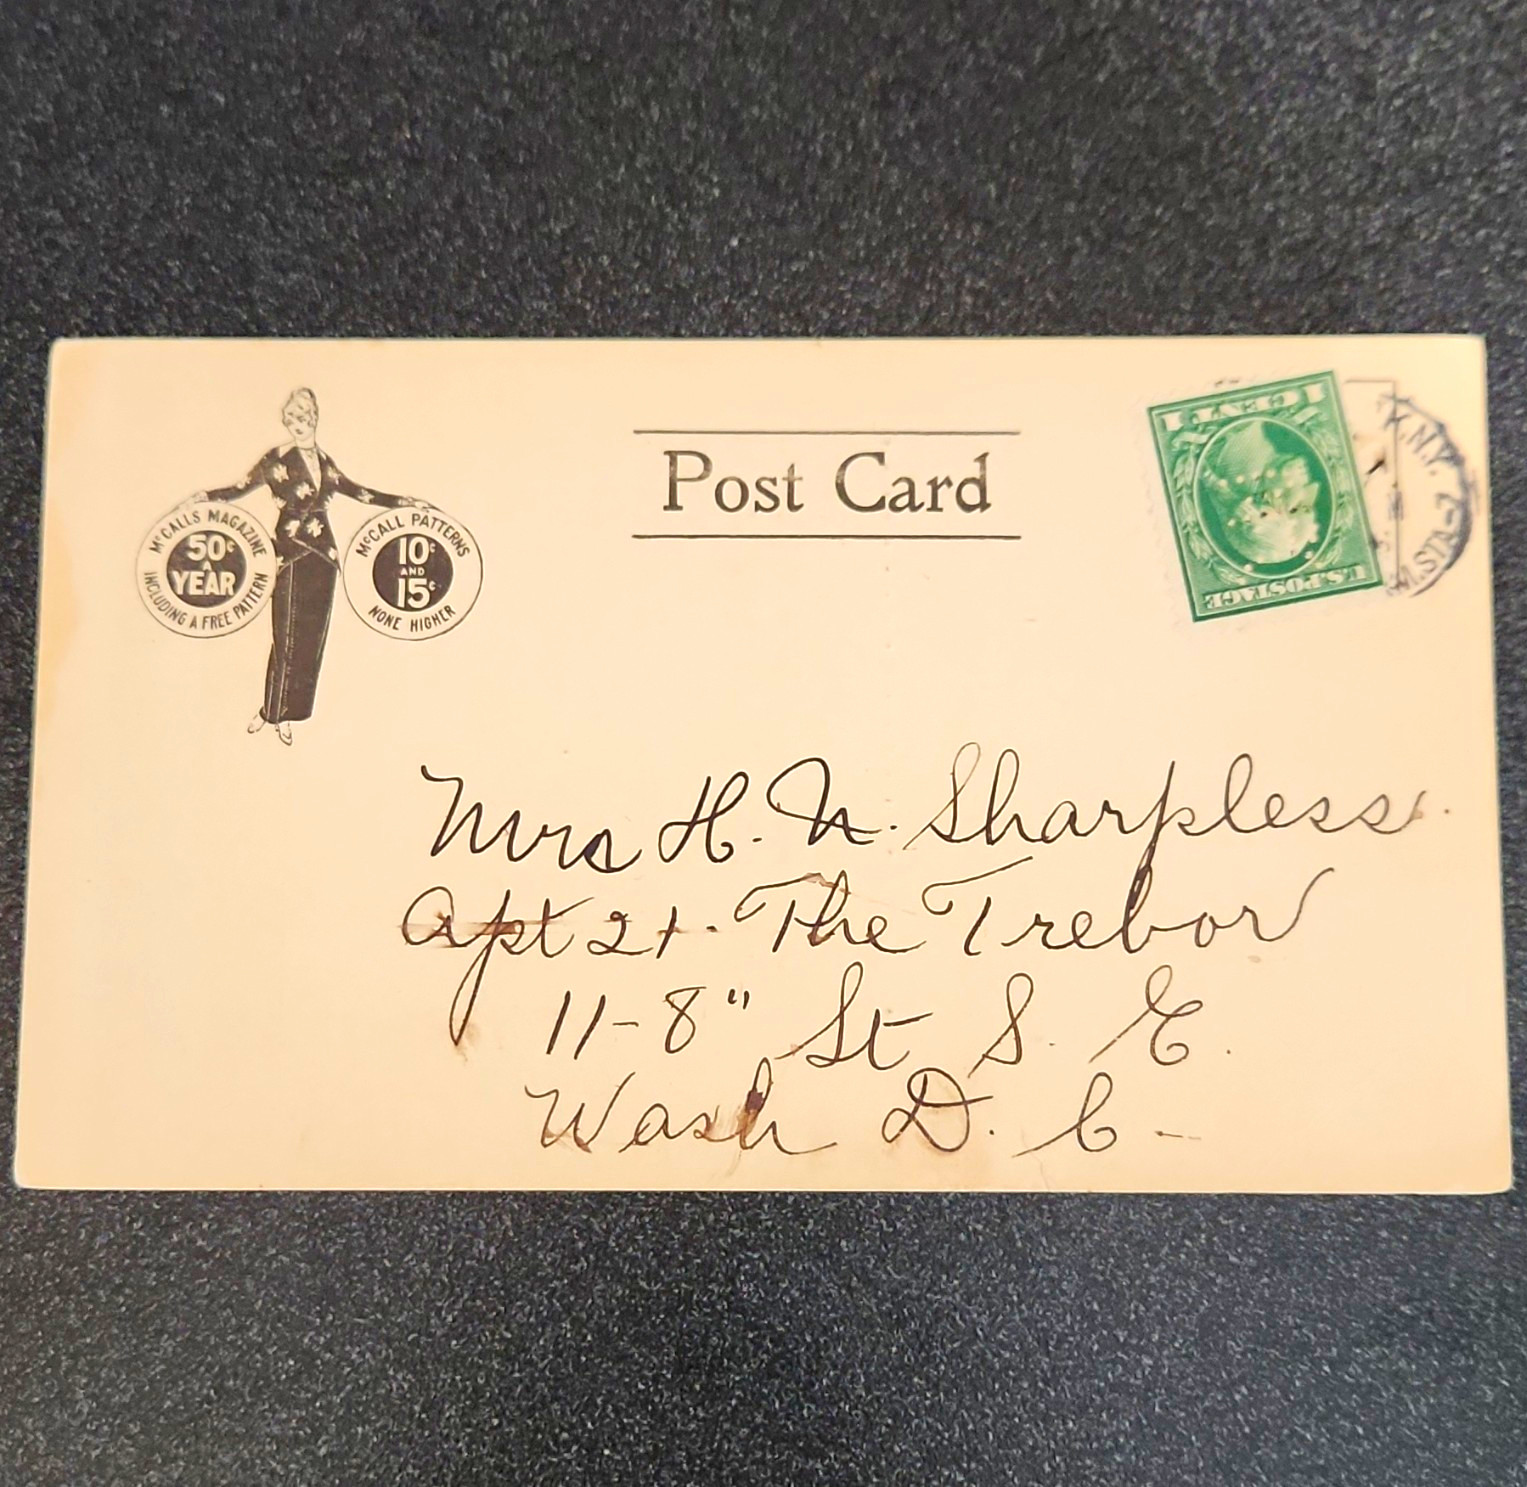 Post Card
McCALLS MAGAZINE
50¢
A
YEAR
INCLUDING A FREE PATTERN
McCALL PATTERNS
10¢
AND
15¢
NONE HIGHER
1 CENT 1
U.S. POSTAGE
N.Y.
STA.
Mrs H. N. Sharpless.
Apt 21. The Trebor
11-8" St S. E.
Wash D. C.-